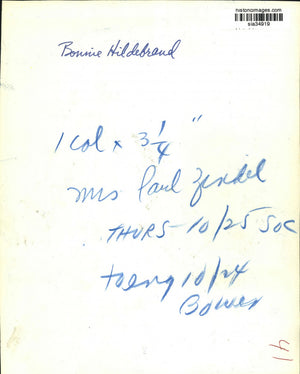 historicimages.com
sia34919
Bonnie Hildebrand
1 col x 3 1/4 "
Mrs Paul Zindel
THURS - 10/25 SOC
to eng 10/24
Bowen
41